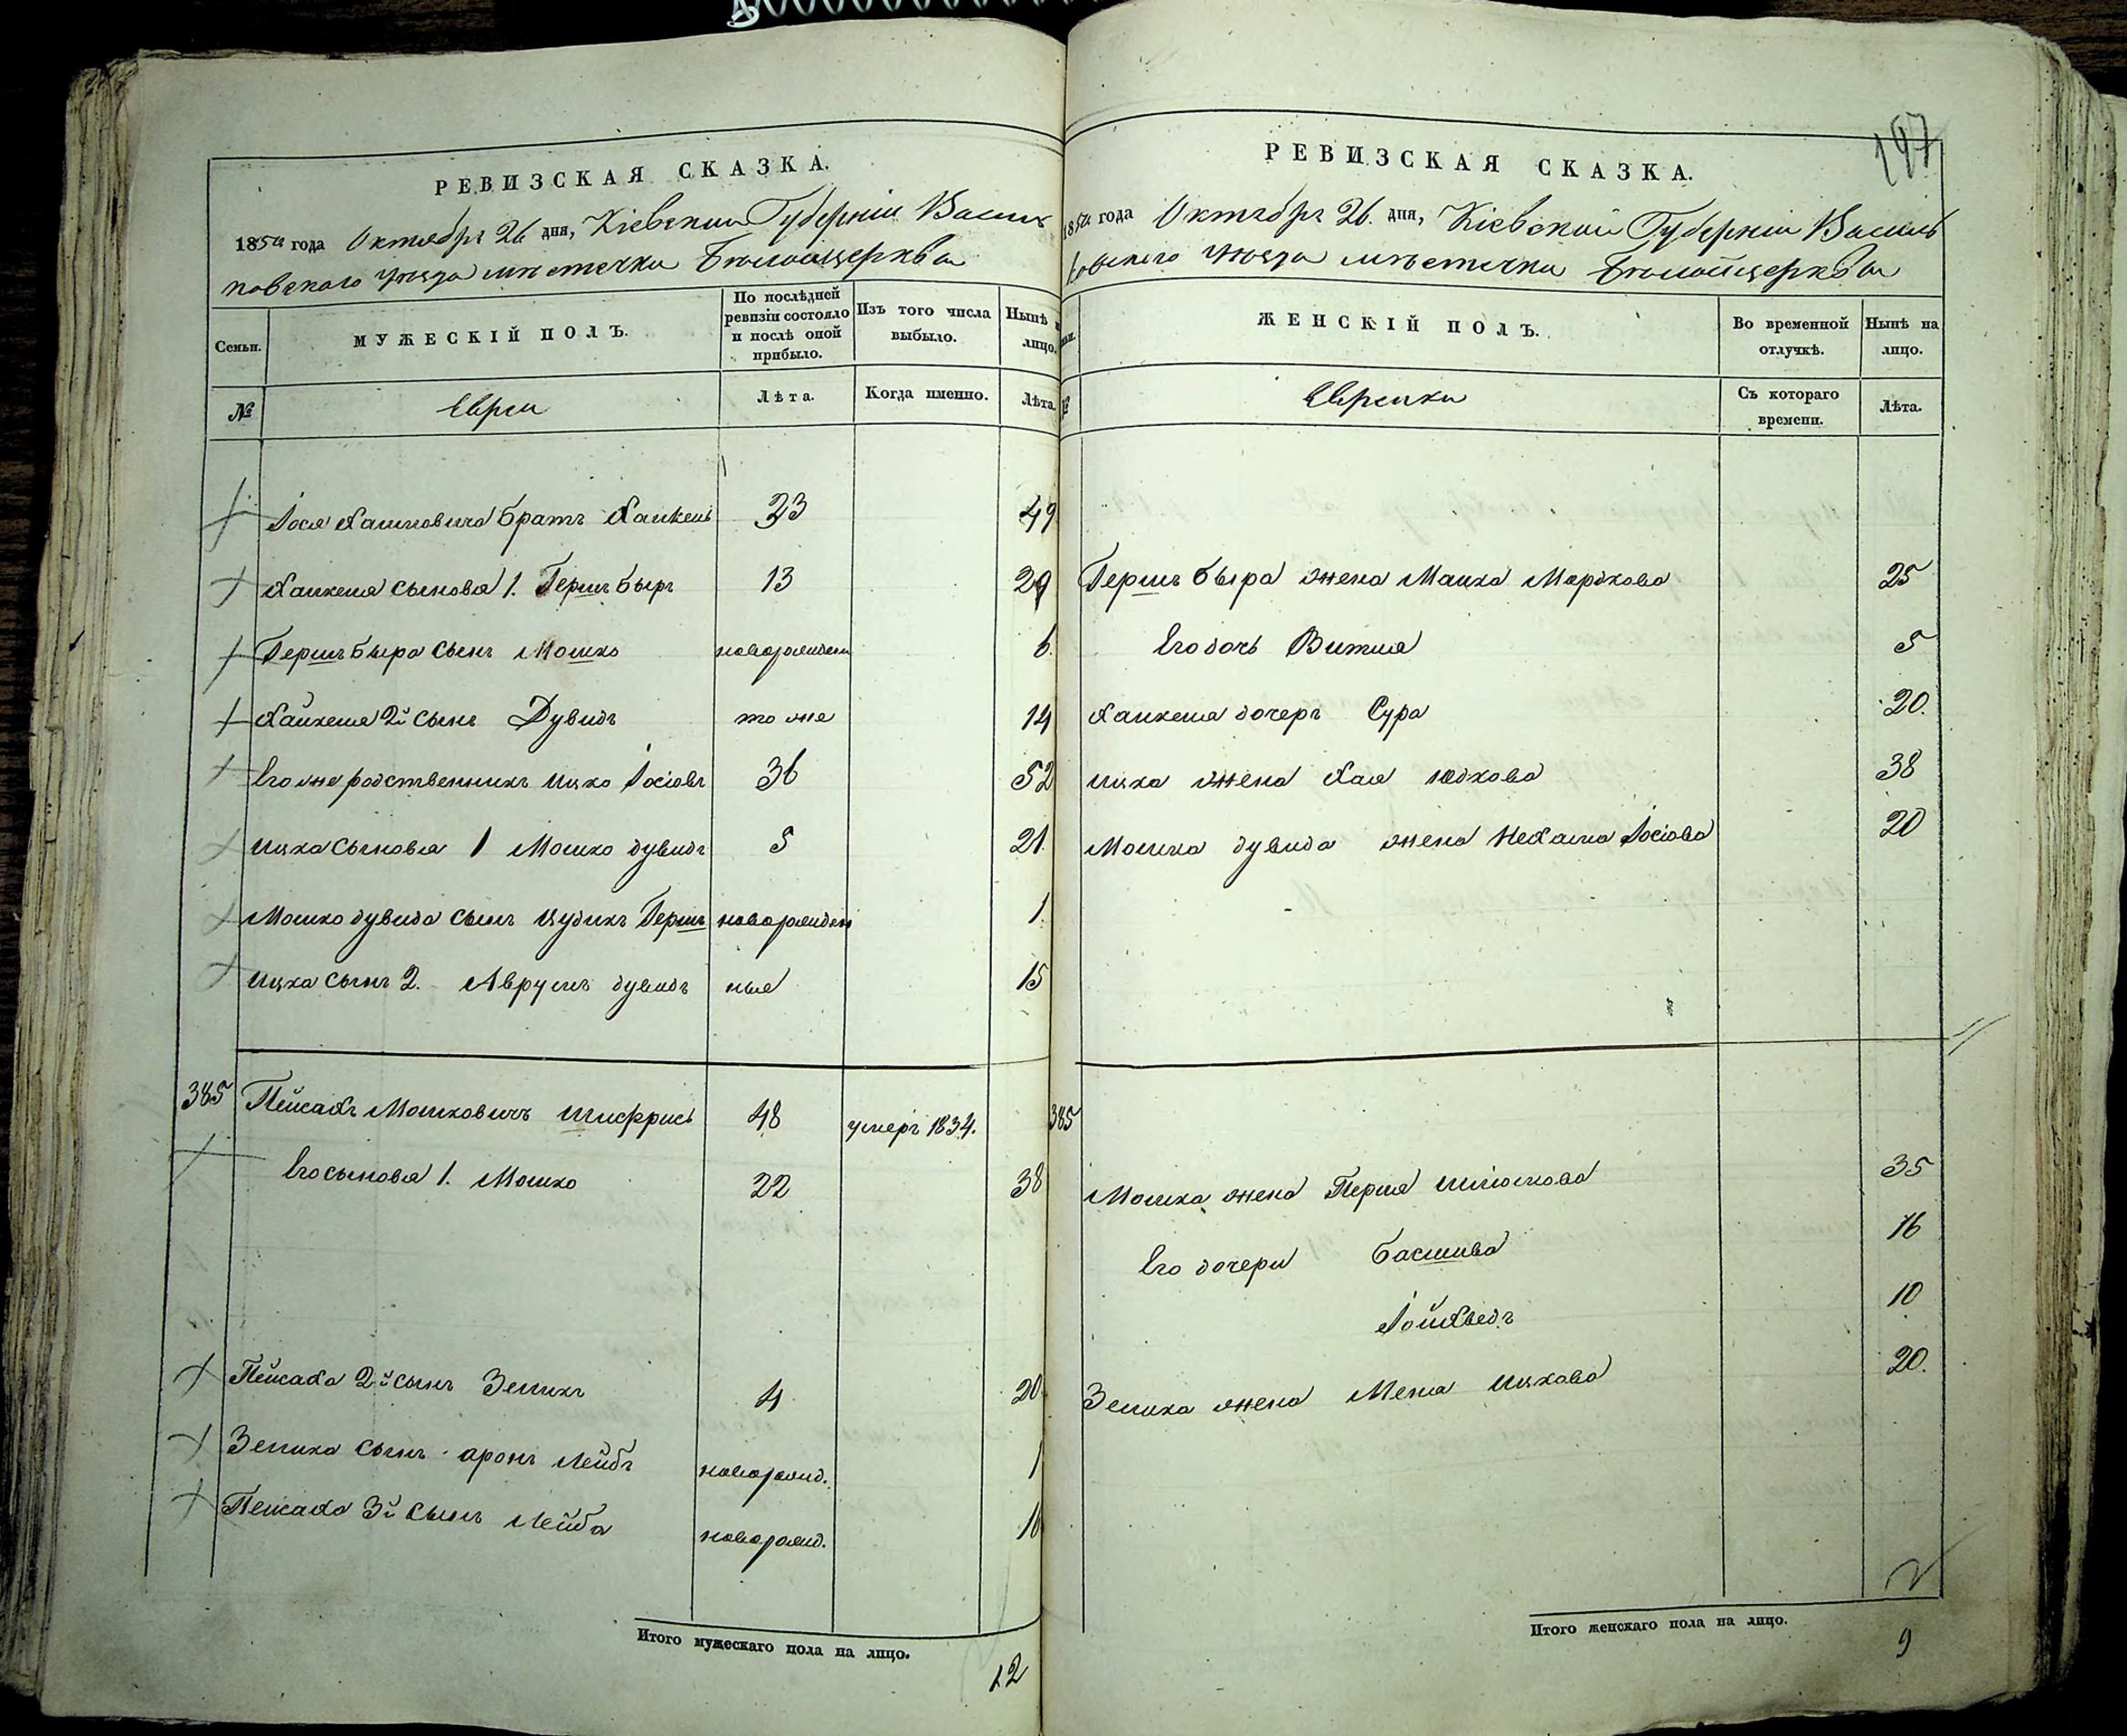 РЕВИЗСКАЯ СКАЗКА.
1850 года Октября 26 дня, Кіевской Губерніи Василь
ковского Уѣзда мѣстечка Бѣлойцеркви
Семьи.
МУЖЕСКІЙ ПОЛЪ.
По послѣдней ревизіи состояло и послѣ оной прибыло.
Изъ того числа выбыло.
Нынѣ на лицо.
№
Евреи
Лѣта.
Когда именно.
Лѣта.
Іося Хаимовича братъ Хаикель 23 49
Хаикеля сыновья 1. Гершъ Беръ 13 29
Гершъ Бера сынъ Мошко новорожден 6.
Хайкеля 2й сынъ Дувидъ то же 14
Его же родственникъ Ицко Іосіовъ 36 52
Ицка сыновья 1 Мошко Дувидъ 5 21.
Мошко Дувида сынъ Юдик Гершъ новорожден 1.
Ицка сынъ 2. Аврумъ Дувидъ ные 15
385 Пейсахъ Мошковичъ 48 умеръ 1834.
Его сыновья 1. Мошко 22 38
Пейсаха 2й сынъ Зейликъ 4 20
Зейлика сынъ Аронъ Лейбъ новорожд. 1
Пейсаха 3й сынъ Лейба новорожд. 10
Итого мужескаго пола на лицо.
12
197
РЕВИЗСКАЯ СКАЗКА.
1850 года Октября 26. дня, Кіевской Губерніи Василь
ковского Уѣзда мѣстечка Бѣлойцеркви
ЖЕНСКІЙ ПОЛЪ.
Во временной отлучкѣ.
Нынѣ на лицо.
№
Еврейки
Съ котораго времени.
Лѣта.
Гершъ Бера жена Малка Мордкова 25
Его дочь Витля 5
Хаикеля дочеръ Сура 20.
Ицка жена Хая Юдкова 38
Мошка Дувида жена Нехама Іосіова 20
385
Мошка жена Перля Шліомова 35
Его дочери Басшива 16
Іойхведъ 10
Зейлика жена Меня Ицкова 20.
Итого женскаго пола на лицо.
9